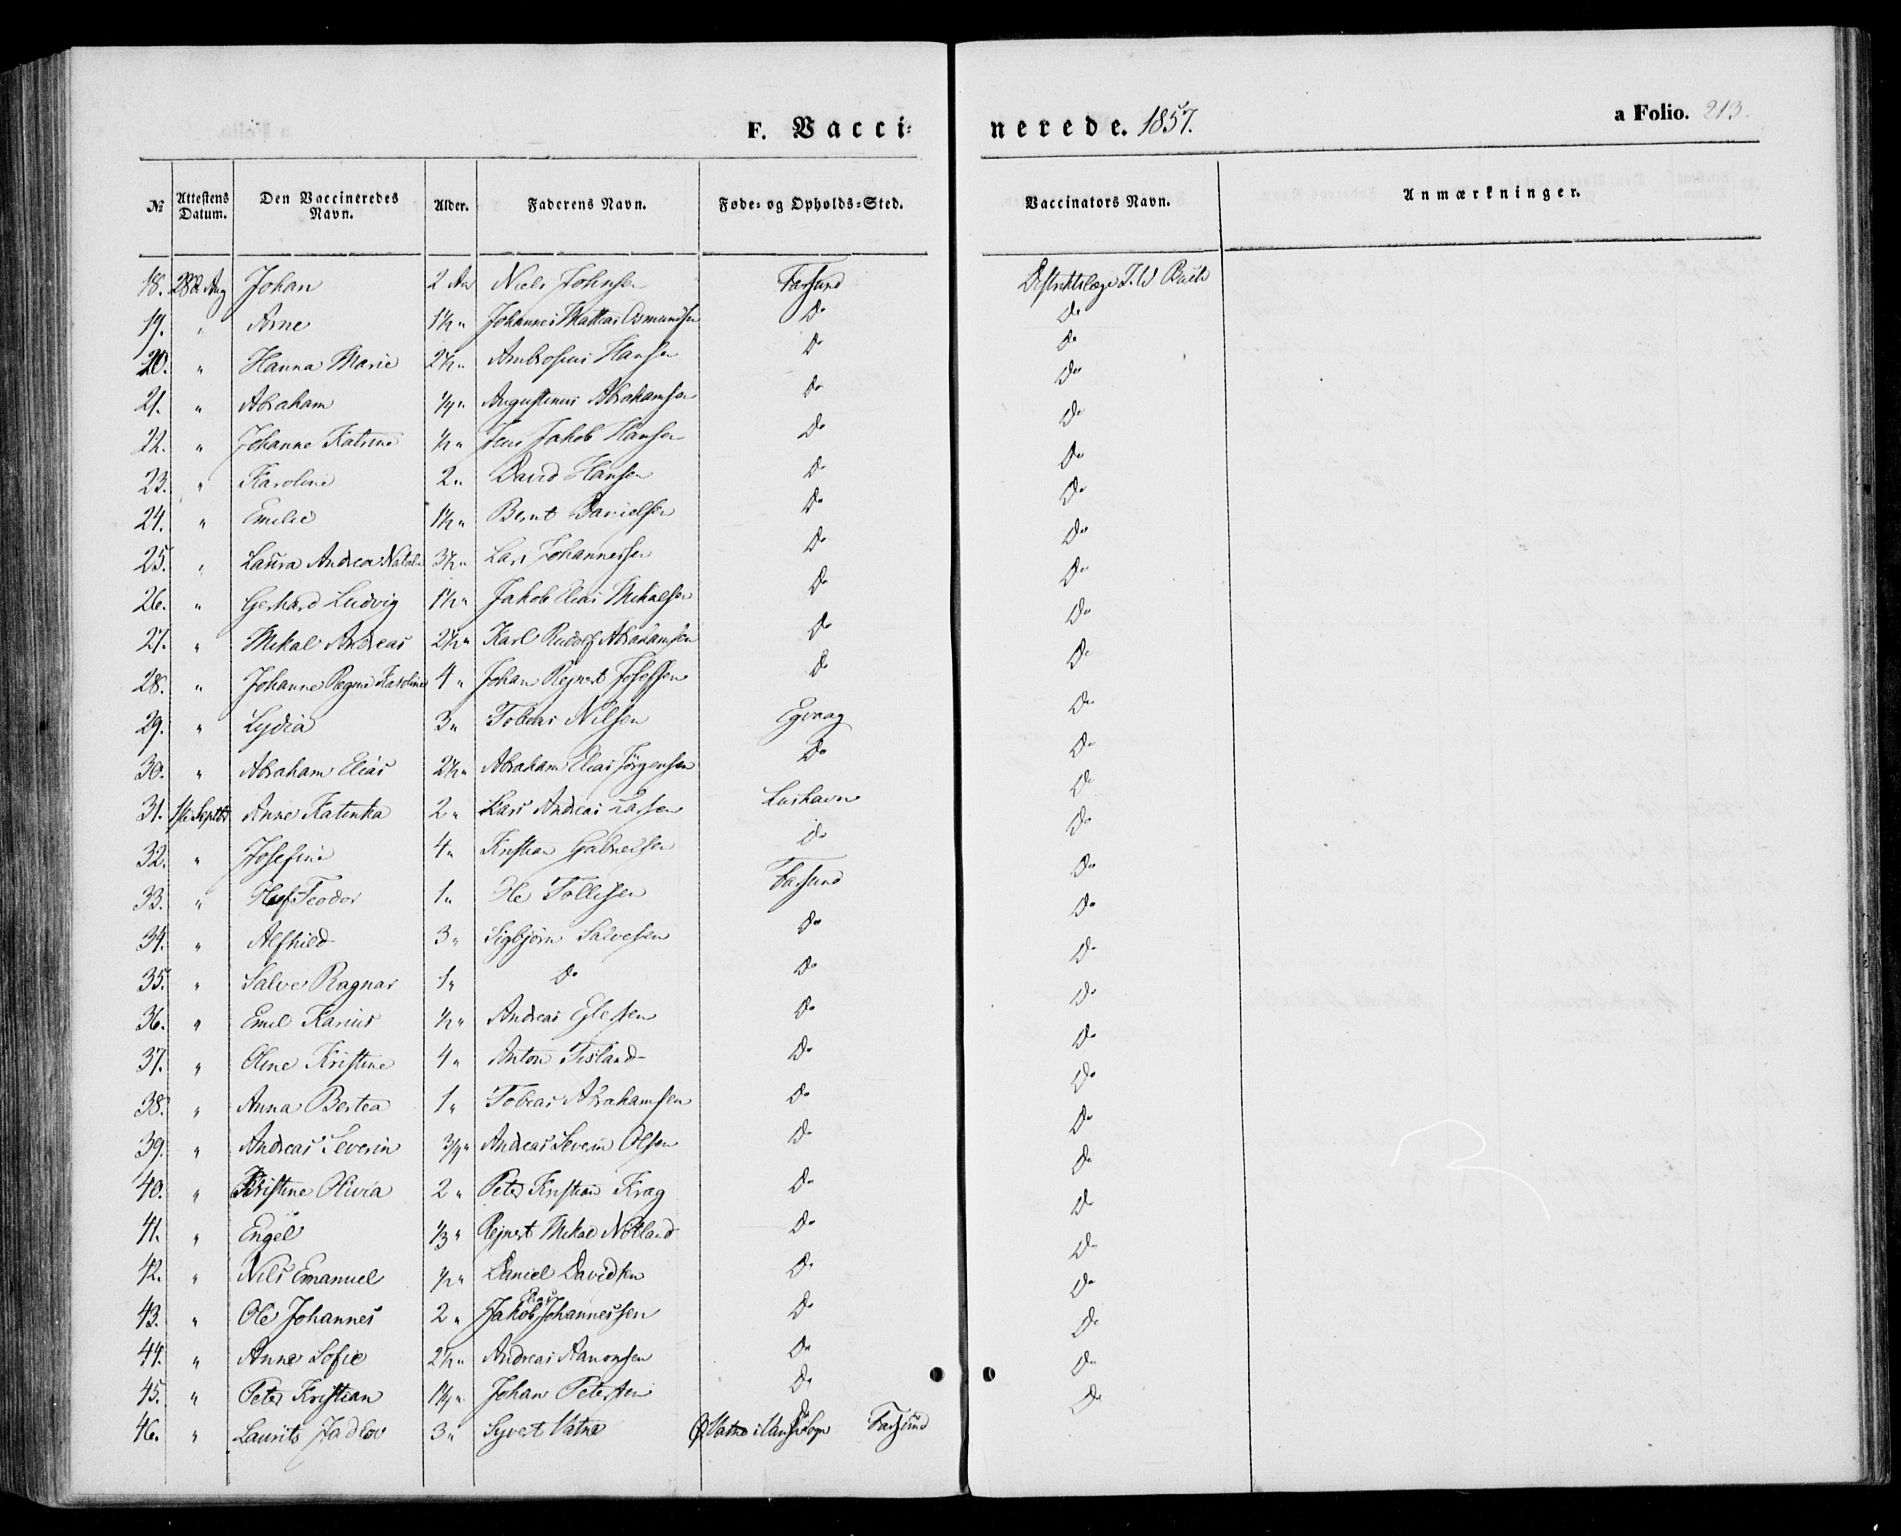 F. Vacci=nerede. 1857.
a Folio. 213.
№ Attestens Datum. Den Vaccineredes Navn. Alder. Faderens Navn. Føde= og Opholds=Sted. Vaccinators Navn. Anmærkninger.
18. 28de Aug Johan 2 Aar Niels Johnsen Farsund Distriktslæge
19. " Arne 1½ " Johannes Mattias Osmundsen Do Do
20. " Hanna Marie 2½ " Ambrosius Hansen Do Do
21. " Abraham ¼ " Augustinus Abrahamsen Do Do
22. " Johanne Katrine ½ " Jens Jakob Hansen Do Do
23. " Karoline 2 " David Hansen Do Do
24. " Emilie 1½ " Bernt Danielsen Do Do
25. " Laura Andrea 3½ " Lars Johannessen Do Do
26. " Gerhard Ludvig 1½ " Jakob Elias Mikalsen Do Do
27. " Mikal Andreas 2½ " Karl Rudolf Abrahamsen Do Do
28. " Johanne Regine Karoline 4 " Johan Rejnert Josefsen Do Do
29. " Lydia 3 " Tobias Nilsen Egvaag Do
30. " Abraham Elias 2½ " Abraham Elias Jörgensen Do Do
31. 1ste Septbr Anne Katinka 2 " Lars Andreas Larsen Lushavn Do
32. " Josefine 4 " Kristian Gabrielsen Do Do
33. " Teodor 1 " Ole Tollefsen Farsund Do
34. " Alfhild 3 " Sigbjörn Salvesen Do Do
35. " Salve Ragnar 1 " Do Do Do
36. " Emil Karius ½ " Andreas Do Do
37. " Oline Kristine 4 " Anton Do Do
38. " Anna Bertea 1 " Tobias Abrahamsen Do Do
39. " Andreas Severin 3/4 " Andreas Severin Olsen Do Do
40. " Kristine Olivia 2 " Peter Kristian Krag Do Do
41. " Engel ⅓ " Rejnert Mikal Nötland Do Do
42. " Nils Emanuel ½ " Daniel Davidsen Do Do
43. " Ole Johannes 2 " Jakob Elias Johannessen Do Do
44. " Anne Sofie 2½ " Andreas Aanonsen Do Do
45. " Peter Kristian 1¼ " Johan Petersen Do Do
46. " Laurits 3 " Syvert Vatne Vatne i Vanse Sogn Farsund